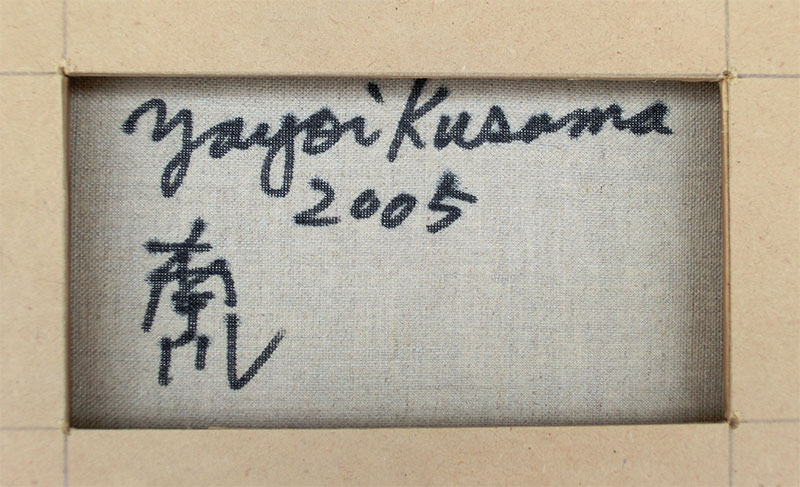 Yayoi Kusama
2005
南瓜